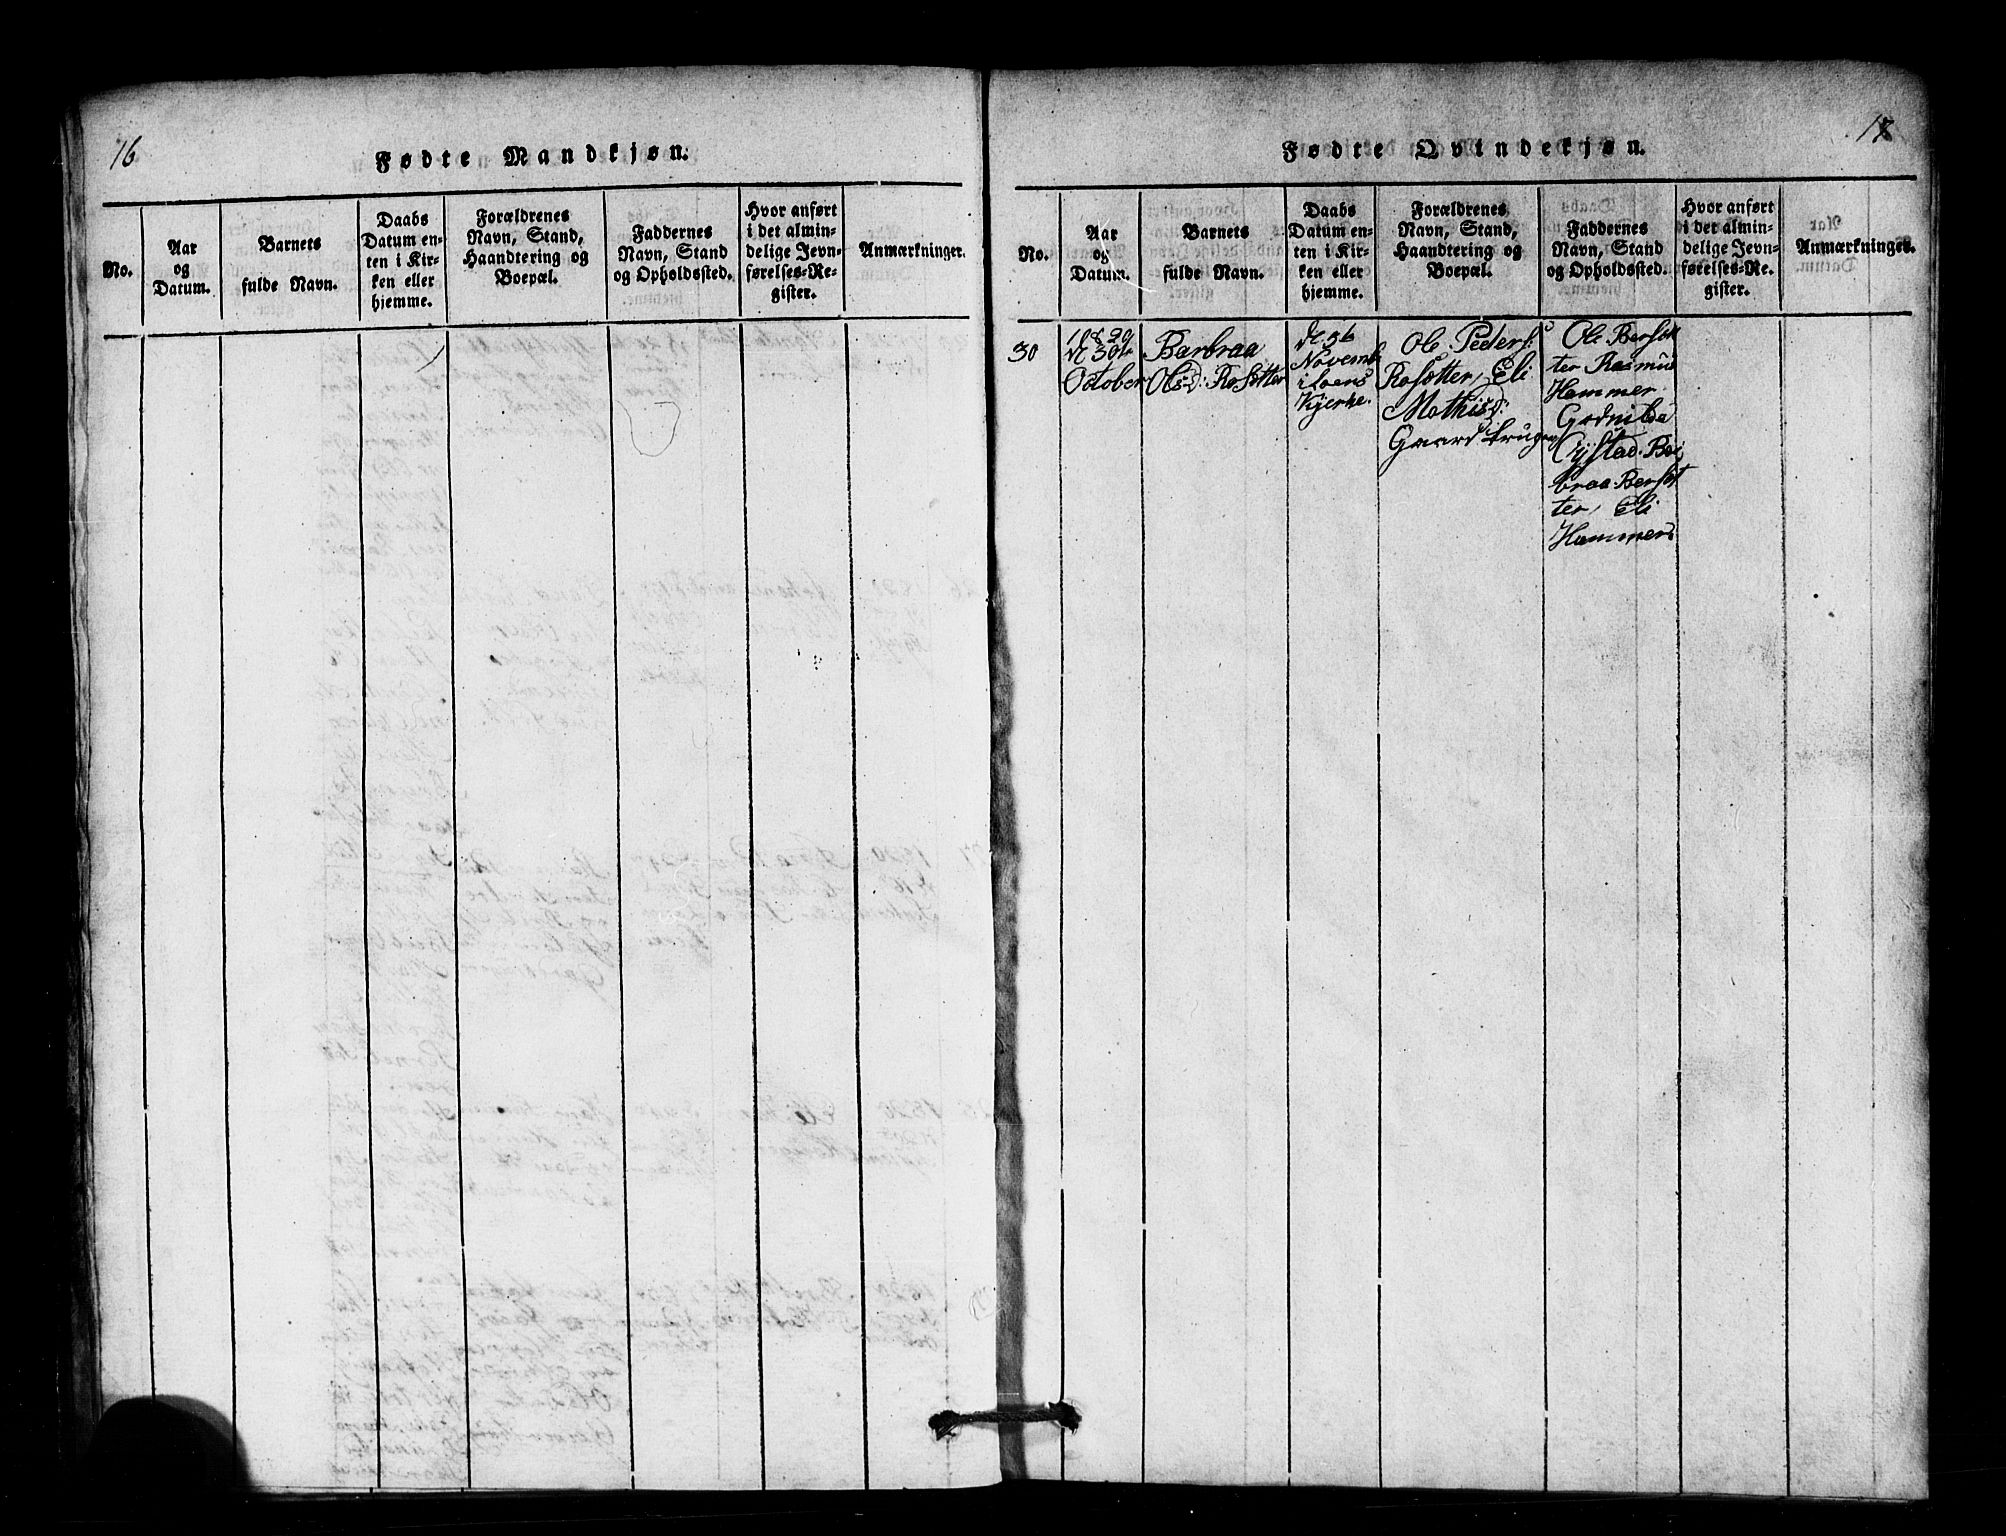 16
Fødte Mandkjøn.
No.
Aar
og
Datum.
Barnets
fulde Navn.
Daabs
Datum en-
ten i Kir-
ken eller
hjemme.
Forældrenes
Navn, Stand,
Haandtering og
Boepæl.
Faddernes
Navn, Stand
og Opholdssted.
Hvor anført
i det almin-
delige Jevn-
førelses-Re-
gister.
Anmærkninger.
Fødte Qvindekjøn.
No.
Aar
og
Datum.
Barnets
fulde Navn.
Daabs
Datum en-
ten i Kir-
ken eller
hjemme.
Forældrenes
Navn, Stand,
Haandtering og
Boepæl.
Faddernes
Navn, Stand
og Opholdssted.
Hvor anført
i det almin-
delige Jevn-
førelses-Re-
gister.
Anmærkninger.
30
1820
October
Barbraa
Ols:D: Rosætter
Novemb
Kjerke.
Ole Peders:
Rosætter, Eli
Mathisd:
Gaardbrug
Ole Bersæt
ter Rasmus
Hammer
Ystad. Bar
braa Bersæt
ter, Eli
Hammers